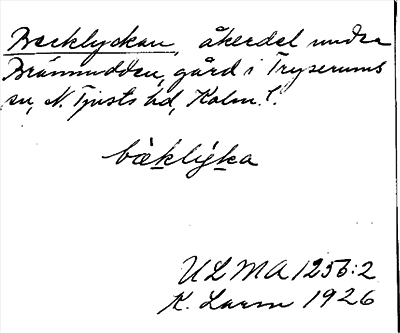 Becklyckan, åkerdel under
Brännudden, gård i Tryserums
sn, N. Tjusts hd, Kalm. l.
bäklýka
ULMA 1256:2
K. Larm 1926